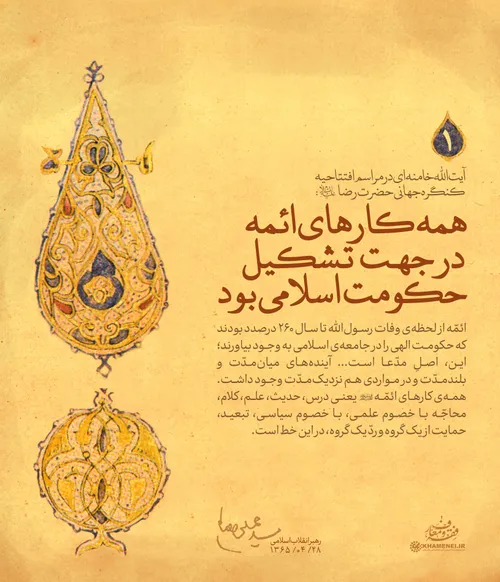 ۱
آیت‌الله خامنه‌ای در مراسم افتتاحیه
کنگره جهانی حضرت رضا علیه‌السلام:
همه کارهای ائمه
در جهت تشکیل
حکومت اسلامی بود
ائمّه از لحظه‌ی وفات رسول‌الله تا سال ۲۶۰ درصدد بودند
که حکومت الهی را در جامعه‌ی اسلامی به وجود بیاورند؛
این، اصلِ مدّعا است... آینده‌های میان‌مدّت و
بلندمدّت و در مواردی هم نزدیک‌مدّت وجود داشت.
همه‌ی کارهای ائمّه یعنی درس، حدیث، علم، کلام،
محاجّه با خصوم علمی، با خصوم سیاسی، تبعید،
حمایت از یک گروه و ردّ یک گروه، در این خط است.
رهبر انقلاب اسلامی
۱۳۶۵/۰۴/۲۸
KHAMENEI.IR